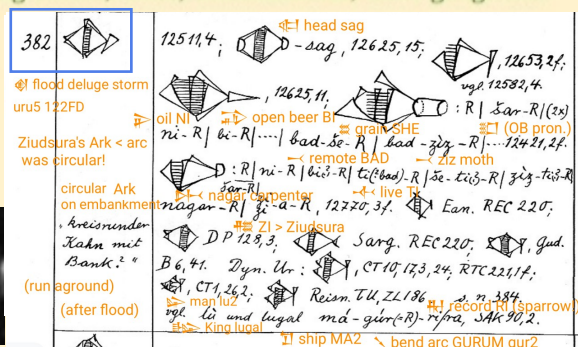 head sag
382
12511,4; -sag, 12625,15; , 12653,2f;
flood deluge storm
vgl. 12582,4.
uru5 122FD
, 12625,11; : R| šar-R|(2x)
oil NI open beer BI grain SHE (OB pron.)
ni-R| bi-R|....| bad-še-R| bad-zìz-R|....12421,2f.
Ziudsura's Ark < arc
was circular!
remote BAD ziz moth
: R| ni-R|
šar-R|
nagar carpenter live TI
circular Ark
on embankment
nagar-R| zi-a-R, 12770,3f. Ean. REC 220;
ZI > Ziudsura
"kreisrunder
Kahn mit
Bank?"
DP 128,3; Sarg. REC 220; , Gud.
B 6,41. Dyn. Ur: , CT 10,17,3,24, RTC 221,1f;
(run aground)
, CT 1,26,2; Reisn. TU, ZL 186 s. n. 384.
man lu2 record RI (sparrow)
(after flood)
vgl. lù und lugal má-gúr(=R)-ri-ra, SAK 90,2.
King lugal
ship MA2 bend arc GURUM gur2